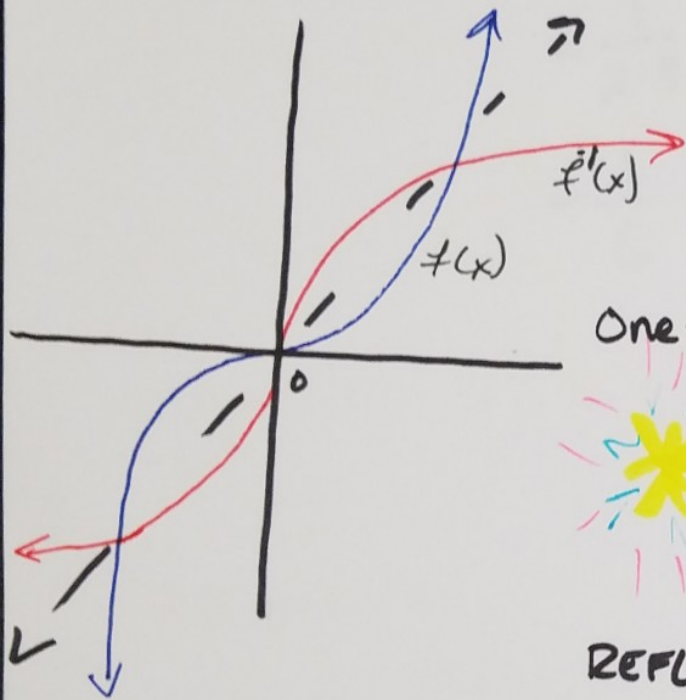 f⁻¹(x)
f(x)
0
One
REFL